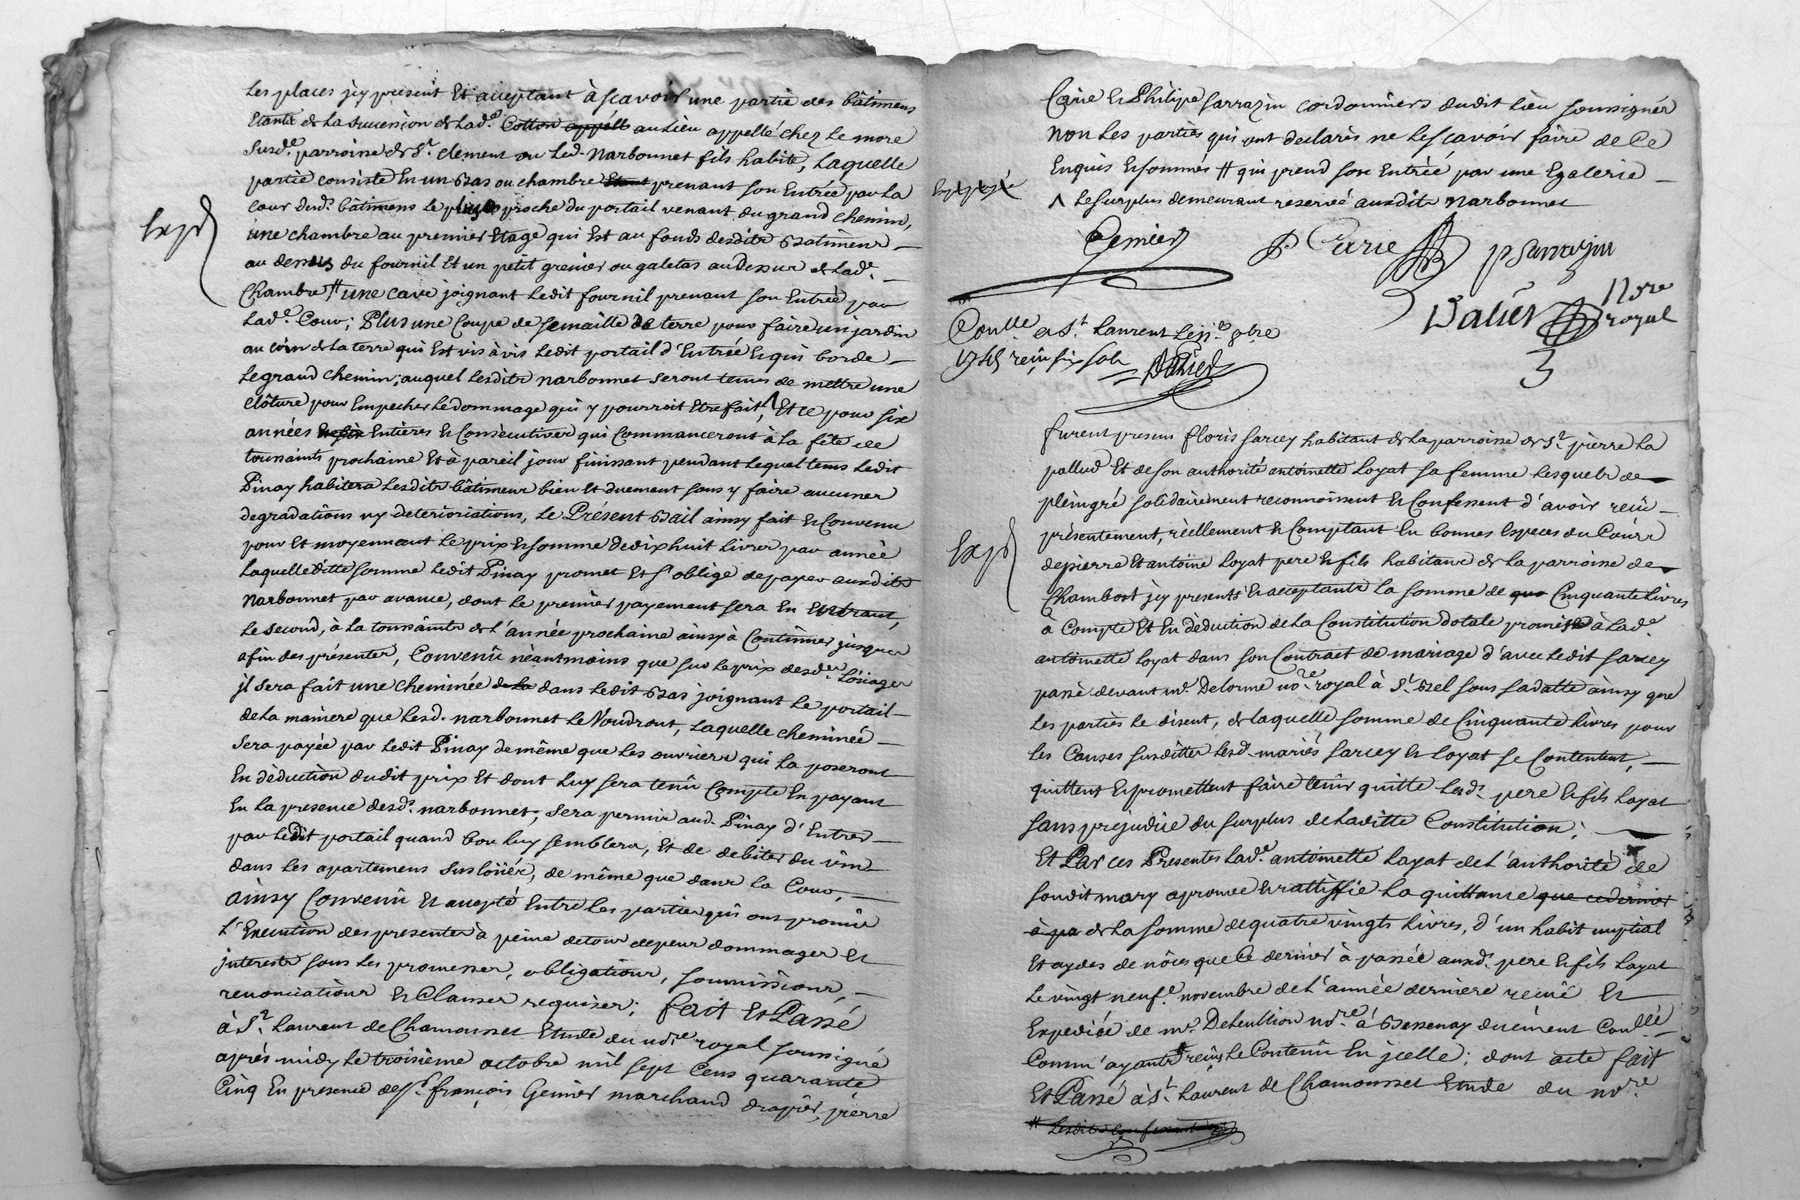 Les places jcy present Et acceptant à scavoir une partie des bâtimens
Etants de la succession de lad.e Cotton appéllé au Lieu appellé chez Le more
Susd.e parroisse de S.t clement ou Led. Narbonnet fils habite, Laquelle
partie consiste En un Bas ou chambre Etant prenant son Entrée par La
Cour desd.s bâtimens le plus proche du portail venant du grand chemin,
une chambre au premier Etage qui Est au fonds desdits Batimens
au dessus du fournil Et un petit grenier ou galetas au Dessus de Lad.e
Chambre # une cave joignant Ledit fournil prenant son Entrée par
Lad.e Cour; Plus une Coupe de Semaille de terre pour faire un jardin
au coin de la terre qui Est vis à vis Ledit portail d'Entrée & qui borde
Le grand chemin; auquel Lesdits narbonnet seront tenus de mettre une
Clôture pour Empecher Le dommage qui y pourroit Etre fait, ʌ Et ce pour six
années Entieres & Consécutives qui Commanceront à La fête de
toussaints prochaine Et à pareil jour finissant pendant Lequel tems Ledit
Pinay habitera Lesdits bâtimens bien Et duement sans y faire aucunes
degradations ny deteriorations, Le Présent Bail ainsy fait & Convenu
pour Et moyennant Le prix & somme de dix huit Livres par année
Laquelle ditte somme Ledit Pinay promet Et s'oblige de payer auxdits
Narbonnet par avance, dont Le premier payement sera En Entrant,
Le second, à la toussaints de L'année prochaine ainsy à Continuer jusques
afin des présentes, Convenû néantmoins que sur Le prix desd.es Loüages
jl sera fait une cheminée de la dans Ledit Bas joignant Le portail
de La maniere que Lesd. narbonnet Le Voudront, Laquelle cheminée
Sera payée par Ledit Pinay de même que Les ouvriers qui La poseront
En dèduction dudit prix Et dont Luy sera tenû Compte En payant
En La presence desd.s narbonnet, sera permis aud. Pinay d'Entrer
par Ledit portail quand bon Luy semblera, Et de debiter du vin
dans Les apartemens susloüés, de même que dans La Cour,
ainsy Convenû Et accepté Entre Les parties qui ont promis
L'Execution des presentes à peine de tous depens dommages Et
jnterests sous Les promesses, obligations, soumissions,
renonciations & Clauses requises; fait Et Passé
à S.t Laurent de Chamousset Etude du no.re royal soussigné
aprés midy Le troisième octobre mil sept Cens quarante
Cinq En presence de S.r françois Gemier marchand drapier, pierre
Expd
Carie & Philipe Sarrazin cordonniers dudit Lieu soussignés
Non Les parties qui ont declarés ne Le scavoir faire de Ce
Enquis & sommés # qui prend son Entrée par une Egalerie
ʌ Le surplus demeurant reservé auxdits narbonnet
Gemier P. Carie p Sarrazin
Dalier No.re
royal
Conllé a S.t Laurent Le 8bre
1745 reçu six sols Dalier
furent presens floris Sarcey habitant de la parroisse de S.t pierre La
pallud Et de son authorité antoinette Loyat sa femme Lesquels de
plein gré solidairement reconnoissent & Confessent d'avoir reçu
présentement, réellement & Comptant En bonnes Especes du Cours
de pierre Et antoine Loyat pere & fils habitans de la parroisse de
Chambost jcy presents & acceptants La somme de Cinquante Livres
à Compte Et En dèduction de La Constitution dotale promise à Lad.e
antoinette Loyat dans son Contract de mariage d'avec Ledit Sarcey
passé devant m.e Delorme no.re royal à S.t Bel sous sa datte ainsy que
Les parties Le disent, de laquelle somme de Cinquante Livres pour
les Causes susdittes Lesd. mariés Sarcey & Loyat se Contentent,
quittent & promettent faire tenir quitte Lesd.s pere & fils Loyat
sans prejudice du surplus de Laditte Constitution;
Et Par ces Presentes Lad.e antoinette Loyat de L'authorité de
son dit mary aprouve & rattiffie La quittance que ce dernier
à pa de La somme de quatre vingts Livres, d'un habit nuptial
Et aydes de nôces que Ce dernier à passée auxd.s pere & fils Loyat
Le vingt neuf.e novembre de L'année derniere reçuë Et
Expediée de m.e no.re à Bessenay duëment Conllé
Comm'ayants reçus Le Contenû En jcelle; dont acte fait
Et Passé à S.t Laurent de Chamousset Etude du no.re
Expd